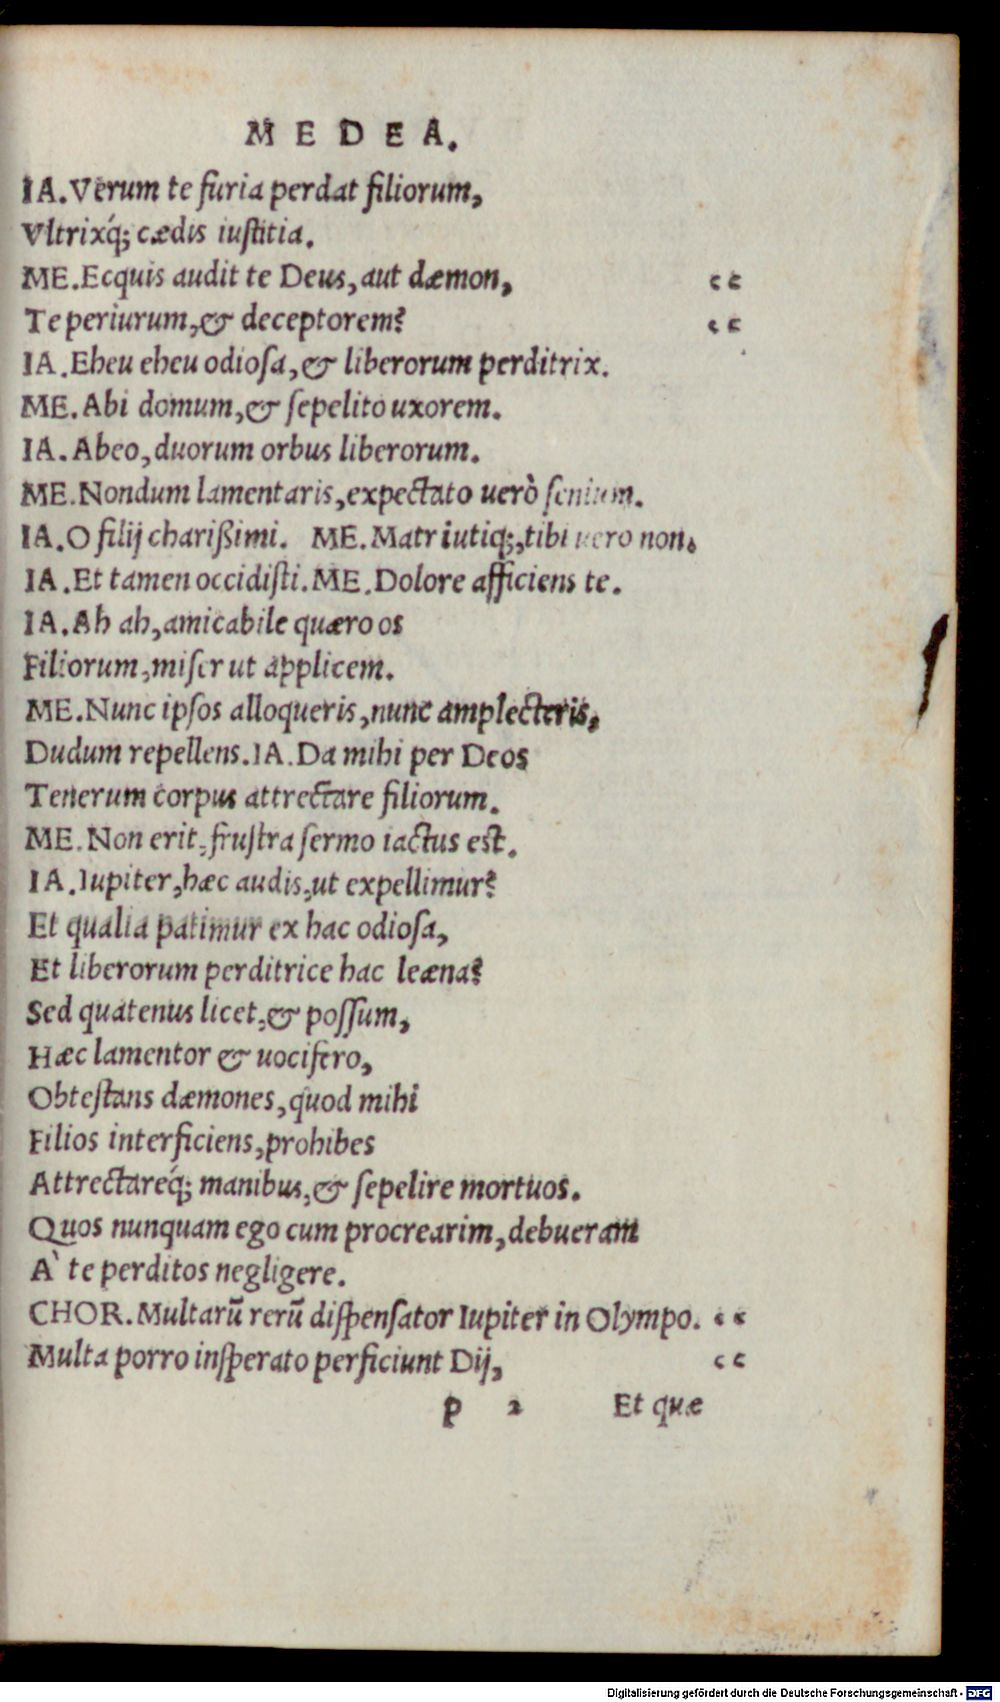 MEDEA.
IA. Verum te furia perdat filiorum,
Vltrixq́; cædis iustitia.
ME. Ecquis audit te Deus, aut dæmon, “
Te periurum, & deceptorem? “
IA. Eheu eheu odiosa, & liberorum perditrix.
ME. Abi domum, & sepelito uxorem.
IA. Abeo, duorum orbus liberorum.
ME. Nondum lamentaris, expectato uerò senium.
IA. O filij charißimi. ME. Matri utiq;, tibi uero non.
IA. Et tamen occidisti. ME. Dolore afficiens te.
IA. Ah ah, amicabile quæro os
Filiorum, miser ut applicem.
ME. Nunc ipsos alloqueris, nunc amplecteris,
Dudum repellens. IA. Da mihi per Deos
Tenerum corpus attrectare filiorum.
ME. Non erit, frustra sermo iactus est.
IA. Iupiter, hæc audis, ut expellimur?
Et qualia patimur ex hac odiosa,
Et liberorum perditrice hac leæna?
Sed quatenus licet, & possum,
Hæc lamentor & uocifero,
Obtestans dæmones, quod mihi
Filios interficiens, prohibes
Attrectareq́; manibus, & sepelire mortuos.
Quos nunquam ego cum procrearim, debueram
A' te perditos negligere.
CHOR. Multarū rerū dispensator Iupiter in Olympo. “
Multa porro insperato perficiunt Dij, “
P 2 Et quæ
Digitalisierung gefördert durch die Deutsche Forschungsgemeinschaft - DFG